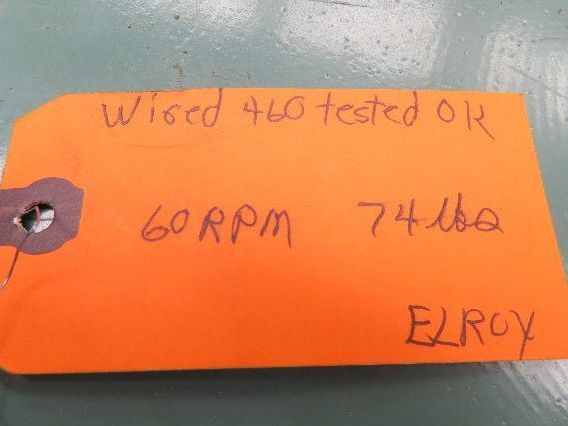 Wired 460 tested OK
60 RPM 74 lbs
ELROY